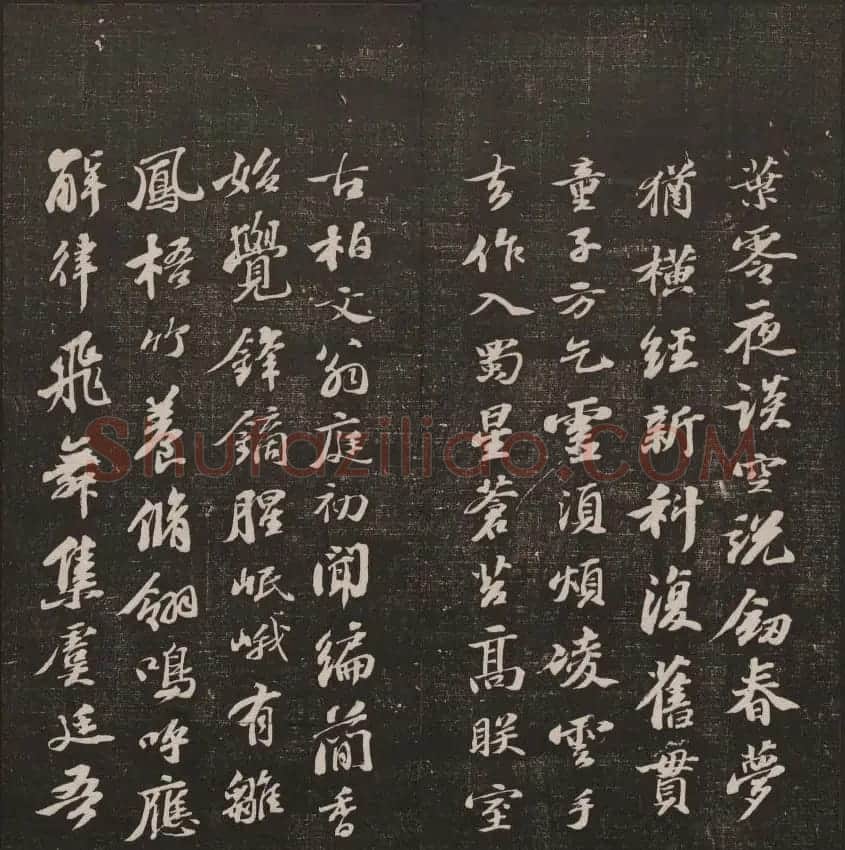 葉零夜談空説釼春夢
猶橫經新科復舊貫
童子方乞靈須煩凌雲手
去作入蜀星蒼苔高朕室
古柏文翁庭初聞編簡香
始覺鋒鏑腥岷峨有雛
鳳梧竹養脩翎鳴呼應
解律飛舞集虞廷吾
Shufaziliao.COM